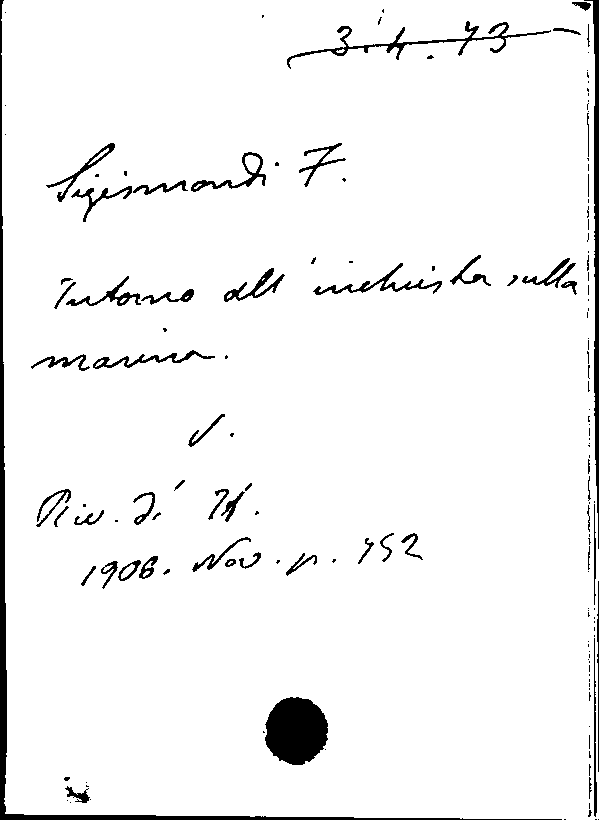 3.4.73
Sigismondi F.
Intorno all'inchiesta sulla
marina.
v.
Riv. di It.
1906. Nov. p. 752